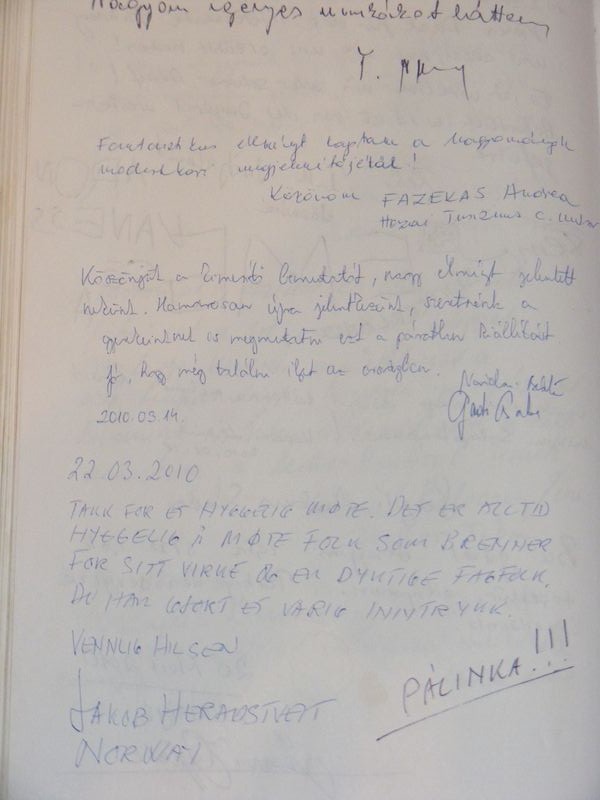 Nagyon igényes munkákat láttam
T.
Fantasztikus élményt kaptam a hagyományok
modernkori megjelenítőjétől!
Köszönöm FAZEKAS Andrea
Hazai Turizmus c.
Köszönjük a ismereti bemutatót, nagy élményt jelentett
nekünk. Hamarosan újra jelentkezünk, szeretnénk a
gyerekeinknek is megmutatni ezt a páratlan kiállítást
jó, hogy még találni ilyet az országban.
2010.03.14.
22.03.2010
TAKK FOR ET HYGGELIG MØTE. DET ER ALLTID
HYGGELIG Å MØTE FOLK SOM BRENNER
FOR SITT VIRKE OG ER DYKTIGE FAGFOLK.
DU HAR GJORT ET VARIG INNTRYKK.
VENNLIG HILSEN
JAKOB HERADSTVEIT
NORWAY
PÁLINKA!!!